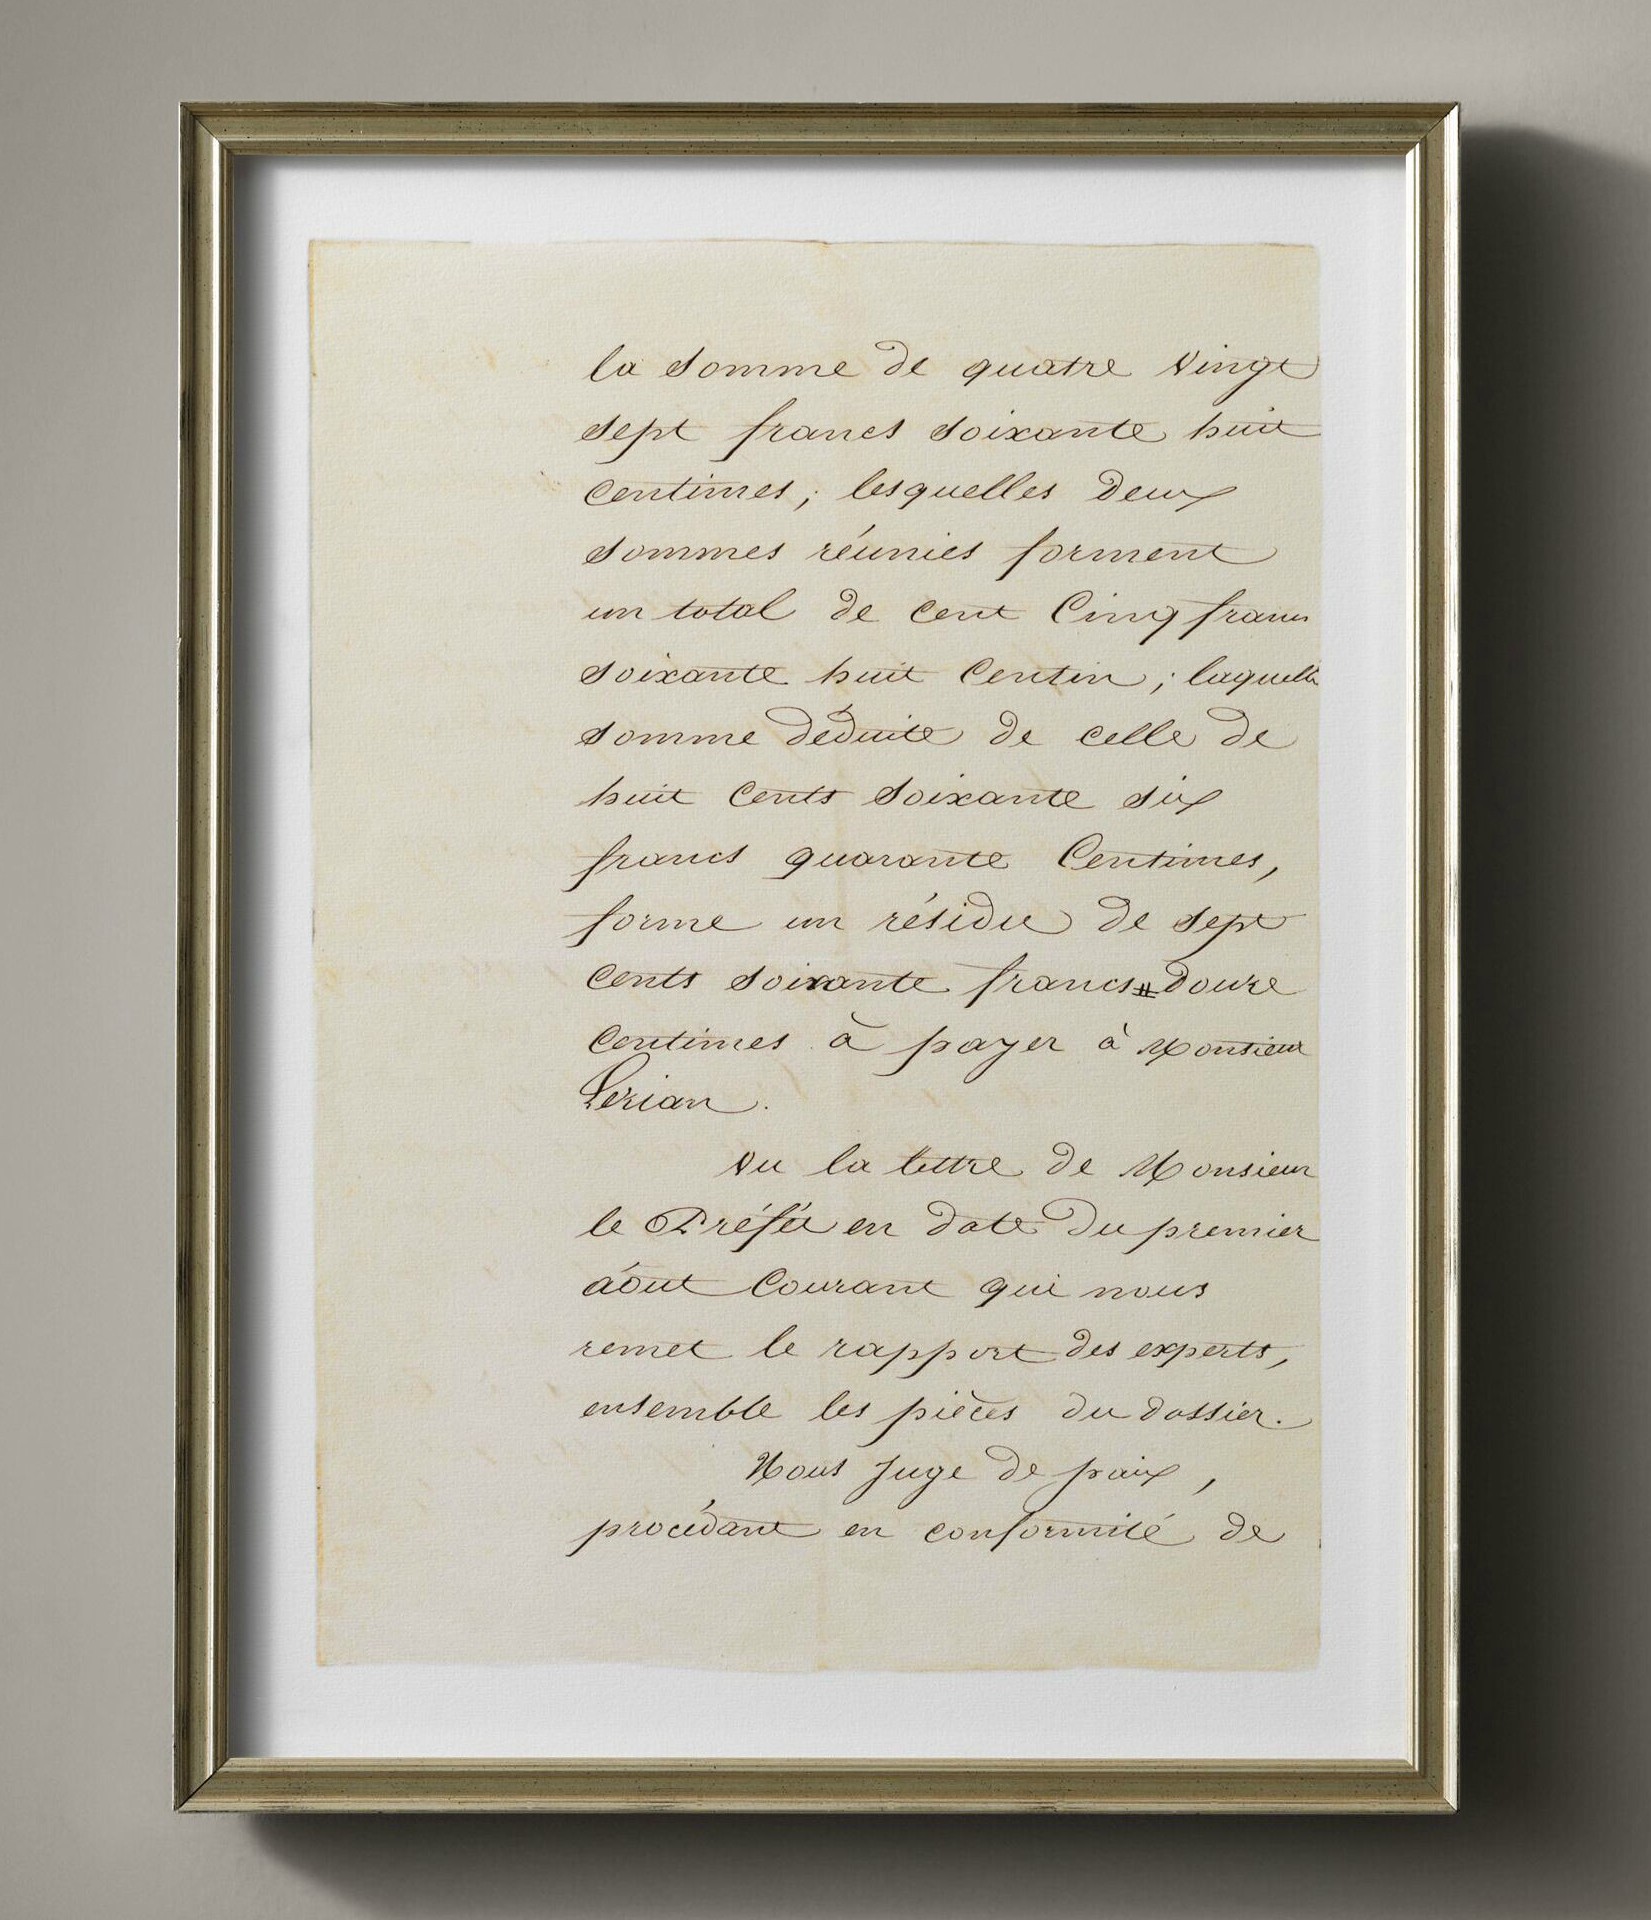 la somme de quatre vingt
sept francs soixante huit
centimes; lesquelles deux
sommes réunies forment
un total de cent cinq francs
soixante huit centim; laquelle
somme déduite de celle de
huit cents soixante six
francs quarante centimes,
forme un résidu de sept
cents soixante francs douze
centimes à payer à Monsieur
Lerian.
Vu la lettre de Monsieur
le Préfet en date du premier
août courant qui nous
remet le rapport des experts,
ensemble les pièces du dossier.
Nous Juge de paix,
procédant en conformité de